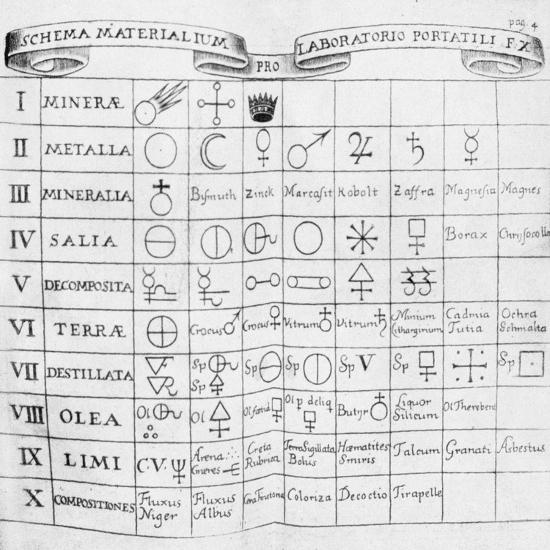 pag. 4
SCHEMA MATERIALIUM PRO LABORATORIO PORTATILI F X
I MINERÆ
II METALLA
III MINERALIA Bismuth Zinck Marcasit Kobolt Zaffra Magnesia Magnes
IV SALIA Borax Chrysocolla
V DECOMPOSITA
VI TERRÆ Crocus Crocus Vitrum Vitrum Minium Cadmia Ochra
Lithargirium Tutia Schmalta
VII DESTILLATA Sp Sp Sp Sp V Sp Sp
Sp
VIII OLEA Ol Ol Ol p deliq Butyr Liquor Ol Therebent
Silicum
IX LIMI C.V. Arena Creta Terra Sigillata Hæmatites Talcum Granati Asbestus
Cineres Rubrica Bolus Smiris
X COMPOSITIONES Fluxus Fluxus Coloriza Decoctio Tirapelle
Niger Albus